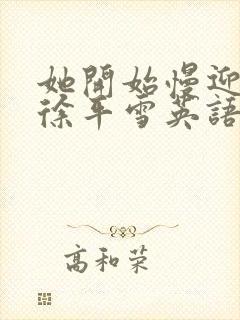 她開始慢迎
徐平雪英語
高和荣